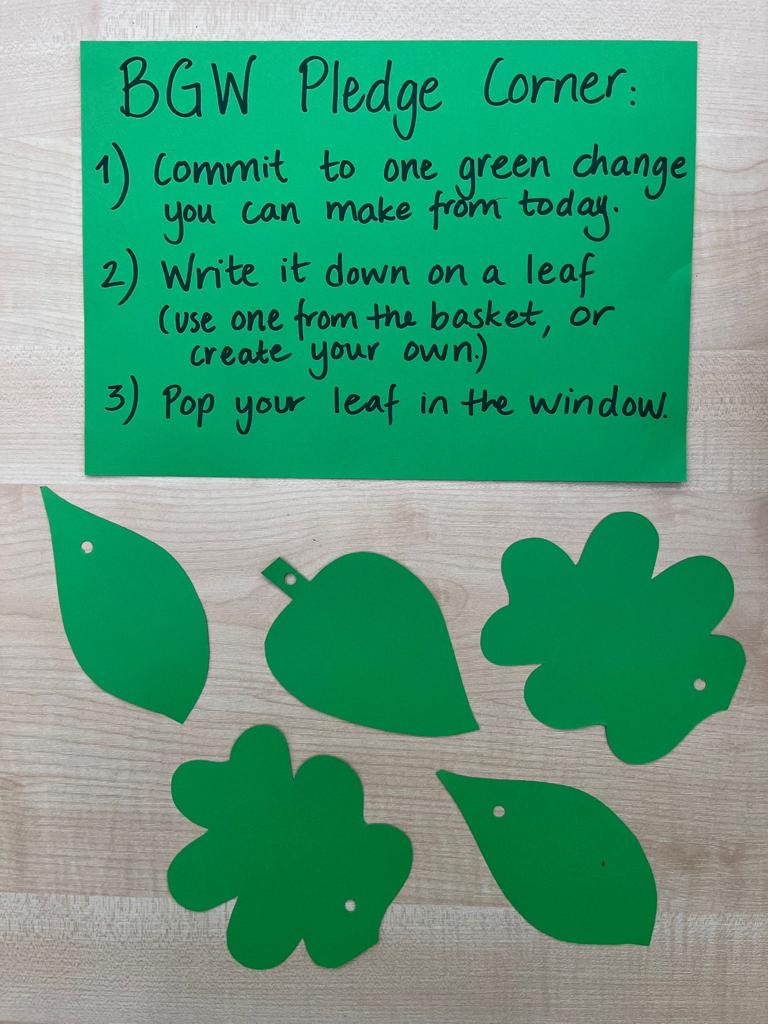 BGW Pledge Corner:
1) Commit to one green change
you can make from today.
2) Write it down on a leaf
(use one from the basket, or
create your own.)
3) Pop your leaf in the window.